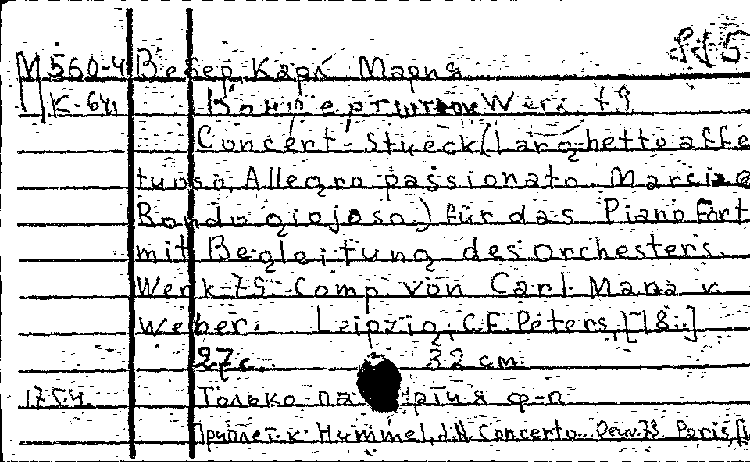 М 560-4 Вебер, Карл Мария
К-641 Концертштюк Werk 79
Concert-Stueck (Larghetto affe
tuoso, Allegro passionato, Marcia e
Rondo giojoso.) für das Pianofort
mit Begleitung des Orchesters.
Werk 79. Comp von Carl Maria v.
Weber. Leipzig, C.F. Peters, [18..]
27 с. 32 см.
Только партия ф-п
Приплет. к: Hummel, J.N. Concerto Paris,